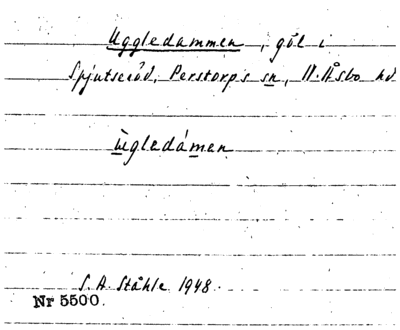 Uggledammen, göl i
Spjutseröd, Perstorps sn, N. Åsbo hd
ùgledámen
S. A. Ståhle 1948.
Nr 5500.